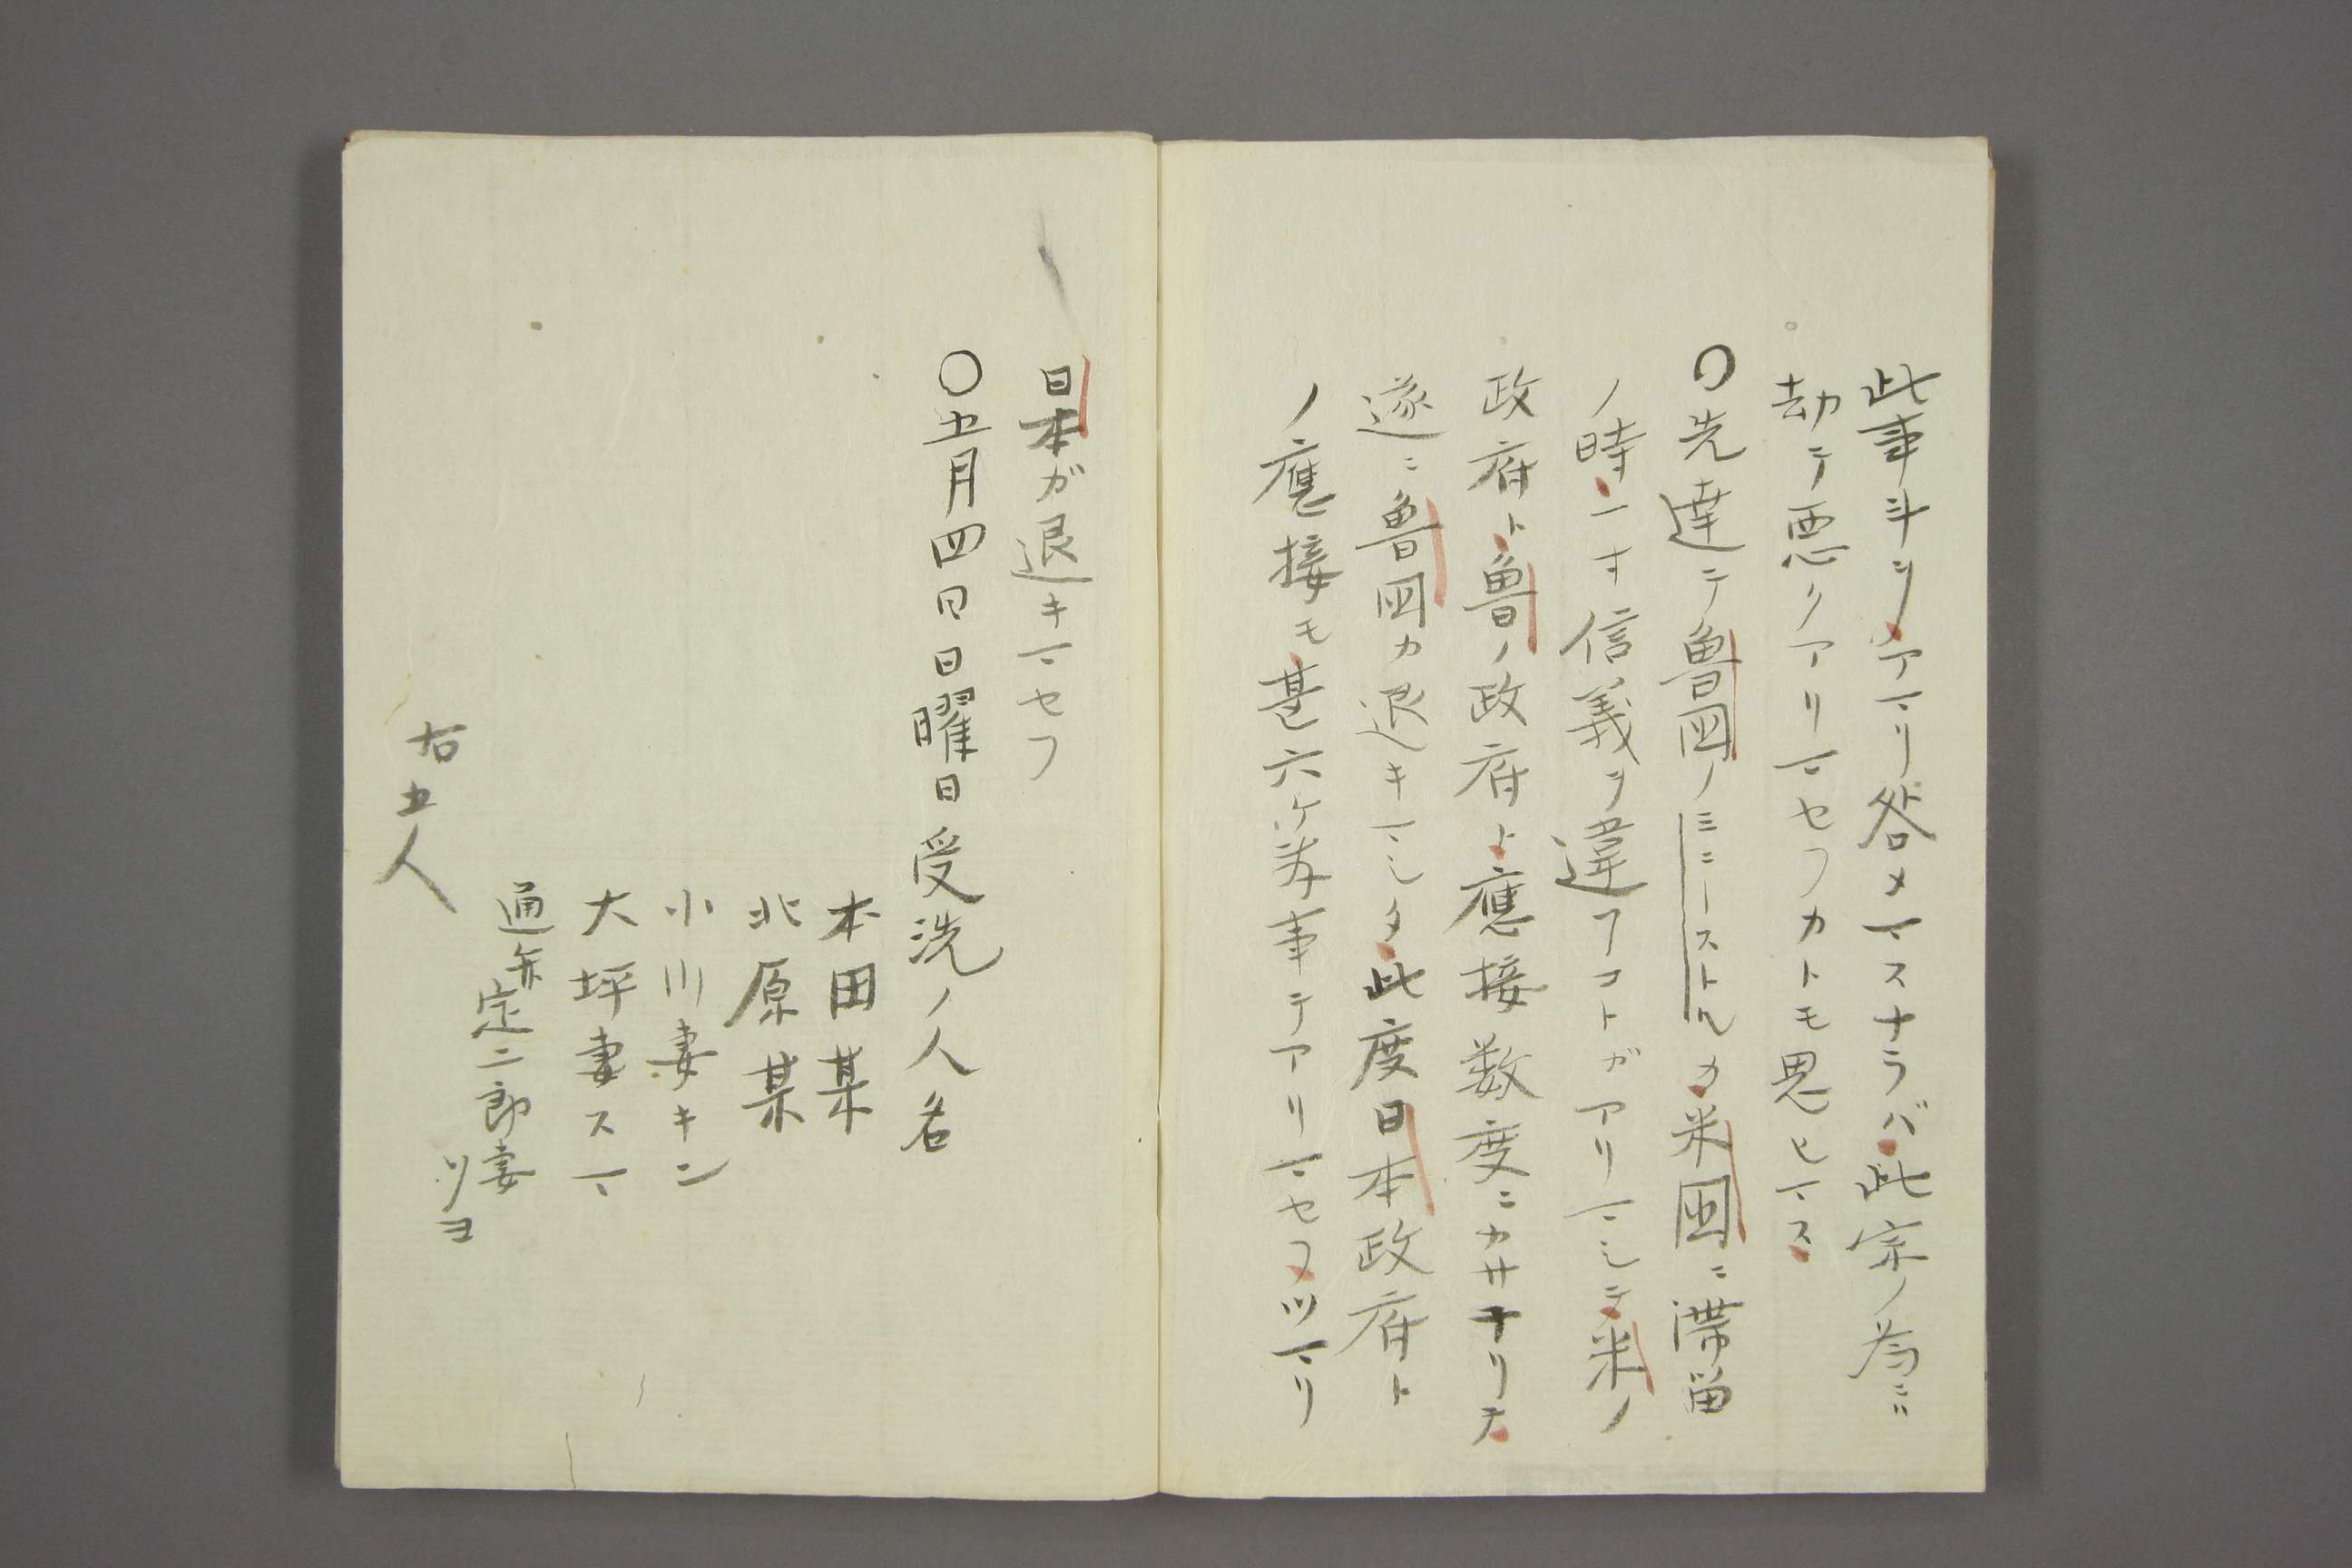 此事斗リヲアマリ咎メマスナラバ此宗ノ為ニ
劫テ悪クアリマセフカトモ思ヒマス
〇先達テ魯国ノミニーストルカ米国ニ滞留
ノ時一寸信義ヲ違フコトガアリマシテ米ノ
政府ト魯ノ政府ト應接数度ニカサナリテ
遂ニ魯国カ退キマシタ此度日本政府ト
ノ應接モ甚六ケ敷事テアリマセフツマリ
日本ガ退キマセフ
〇五月四日日曜日受洗ノ人名
本田某
北原某
小川妻キン
大坪妻スマ
通弁定二郎妻
ツヨ
右五人